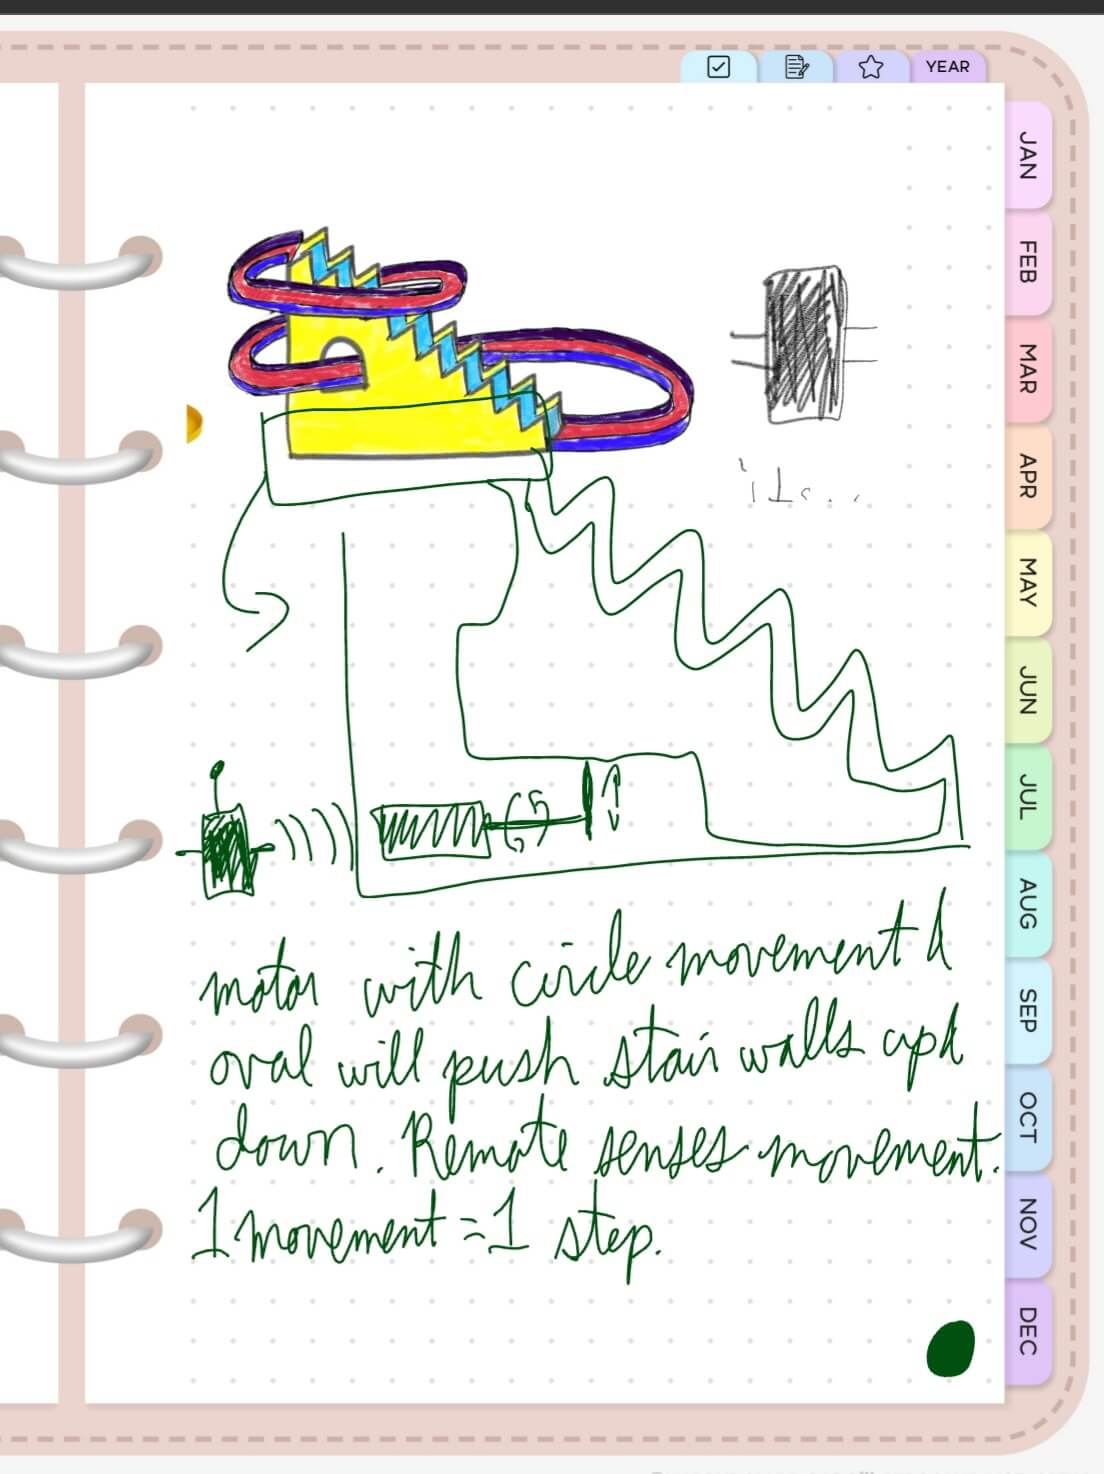 YEAR
JAN
FEB
MAR
APR
MAY
JUN
JUL
AUG
SEP
OCT
NOV
DEC
its...
motor with circle movement &
oval will push stair walls up &
down. Remote senses movement.
1 movement = 1 step.